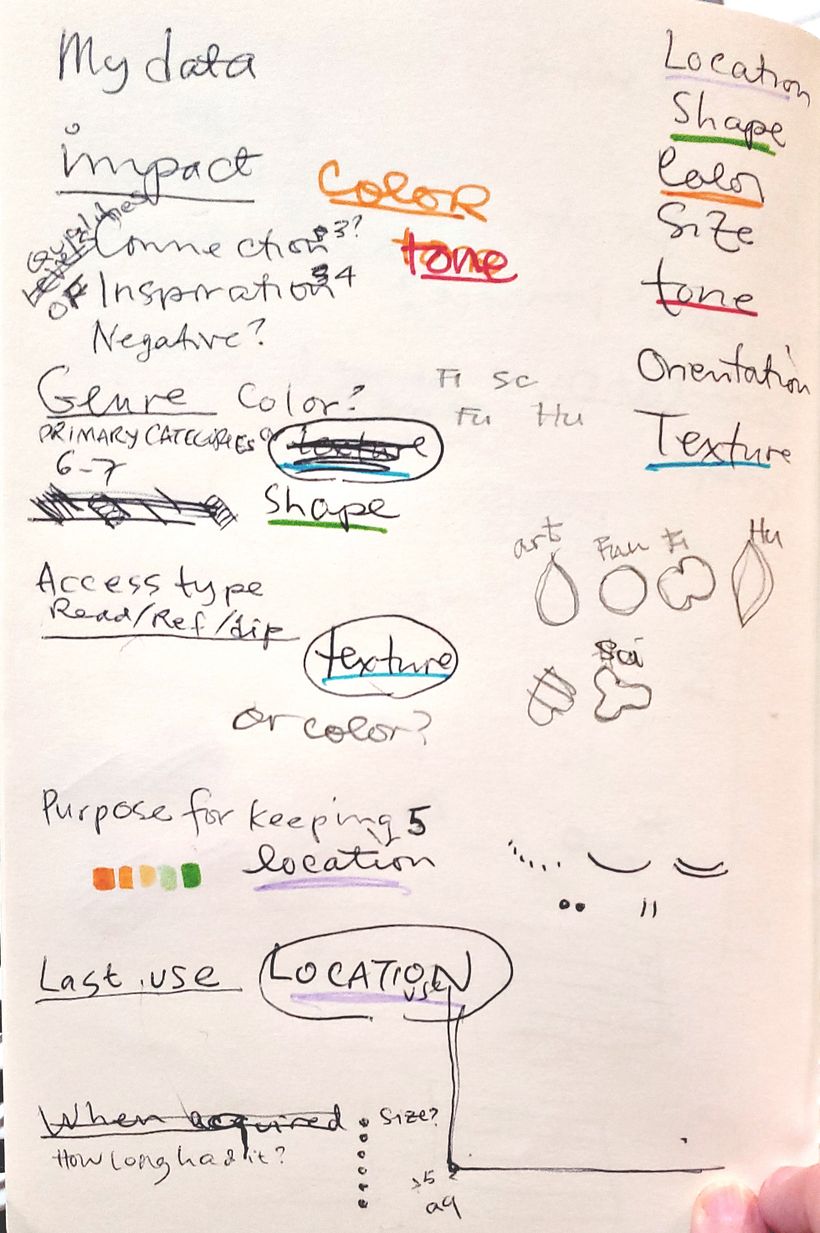 My data
Location
Shape
Color
Size
tone
Orientation
Texture
impact
Color
tone
Qualities
Levels
OF
Connection 3?
Inspiration 4
Negative?
Genre Color?
PRIMARY CATEGORIES or texture
6-7
Shape
Fi Sc
Fu Hu
art Fun Fi Hu
Sci
Access type
Read/Ref/dip
texture
or color?
Purpose for keeping 5
location
Last use LOCATION
use
When acquired size?
How long had it?
5
aq